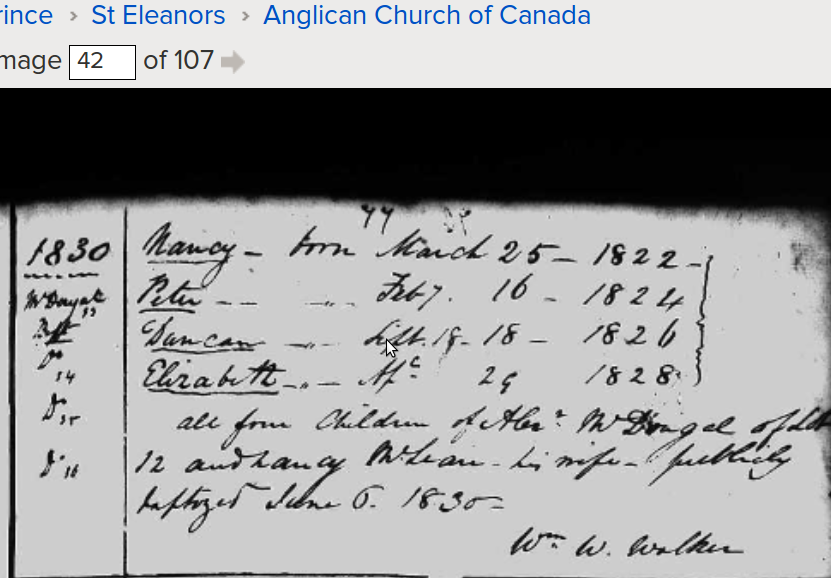 rince › St Eleanors › Anglican Church of Canada
mage 42 of 107
77
1830 Nancy – born March 25 – 1822 –
McDougal 13 Peter – – „ Feby. 16 – 1824
Bapt Duncan – „ – Sept. 18 – 18 – 1826
Do 14 Elizabeth – „ – Apl. 29 1828
Do 15 all four Children of Alexr. McDougal of Lot
Do 16 12 and Nancy McLean – his wife – publicly
baptized June 6. 1830 –
Wm. W. Walker